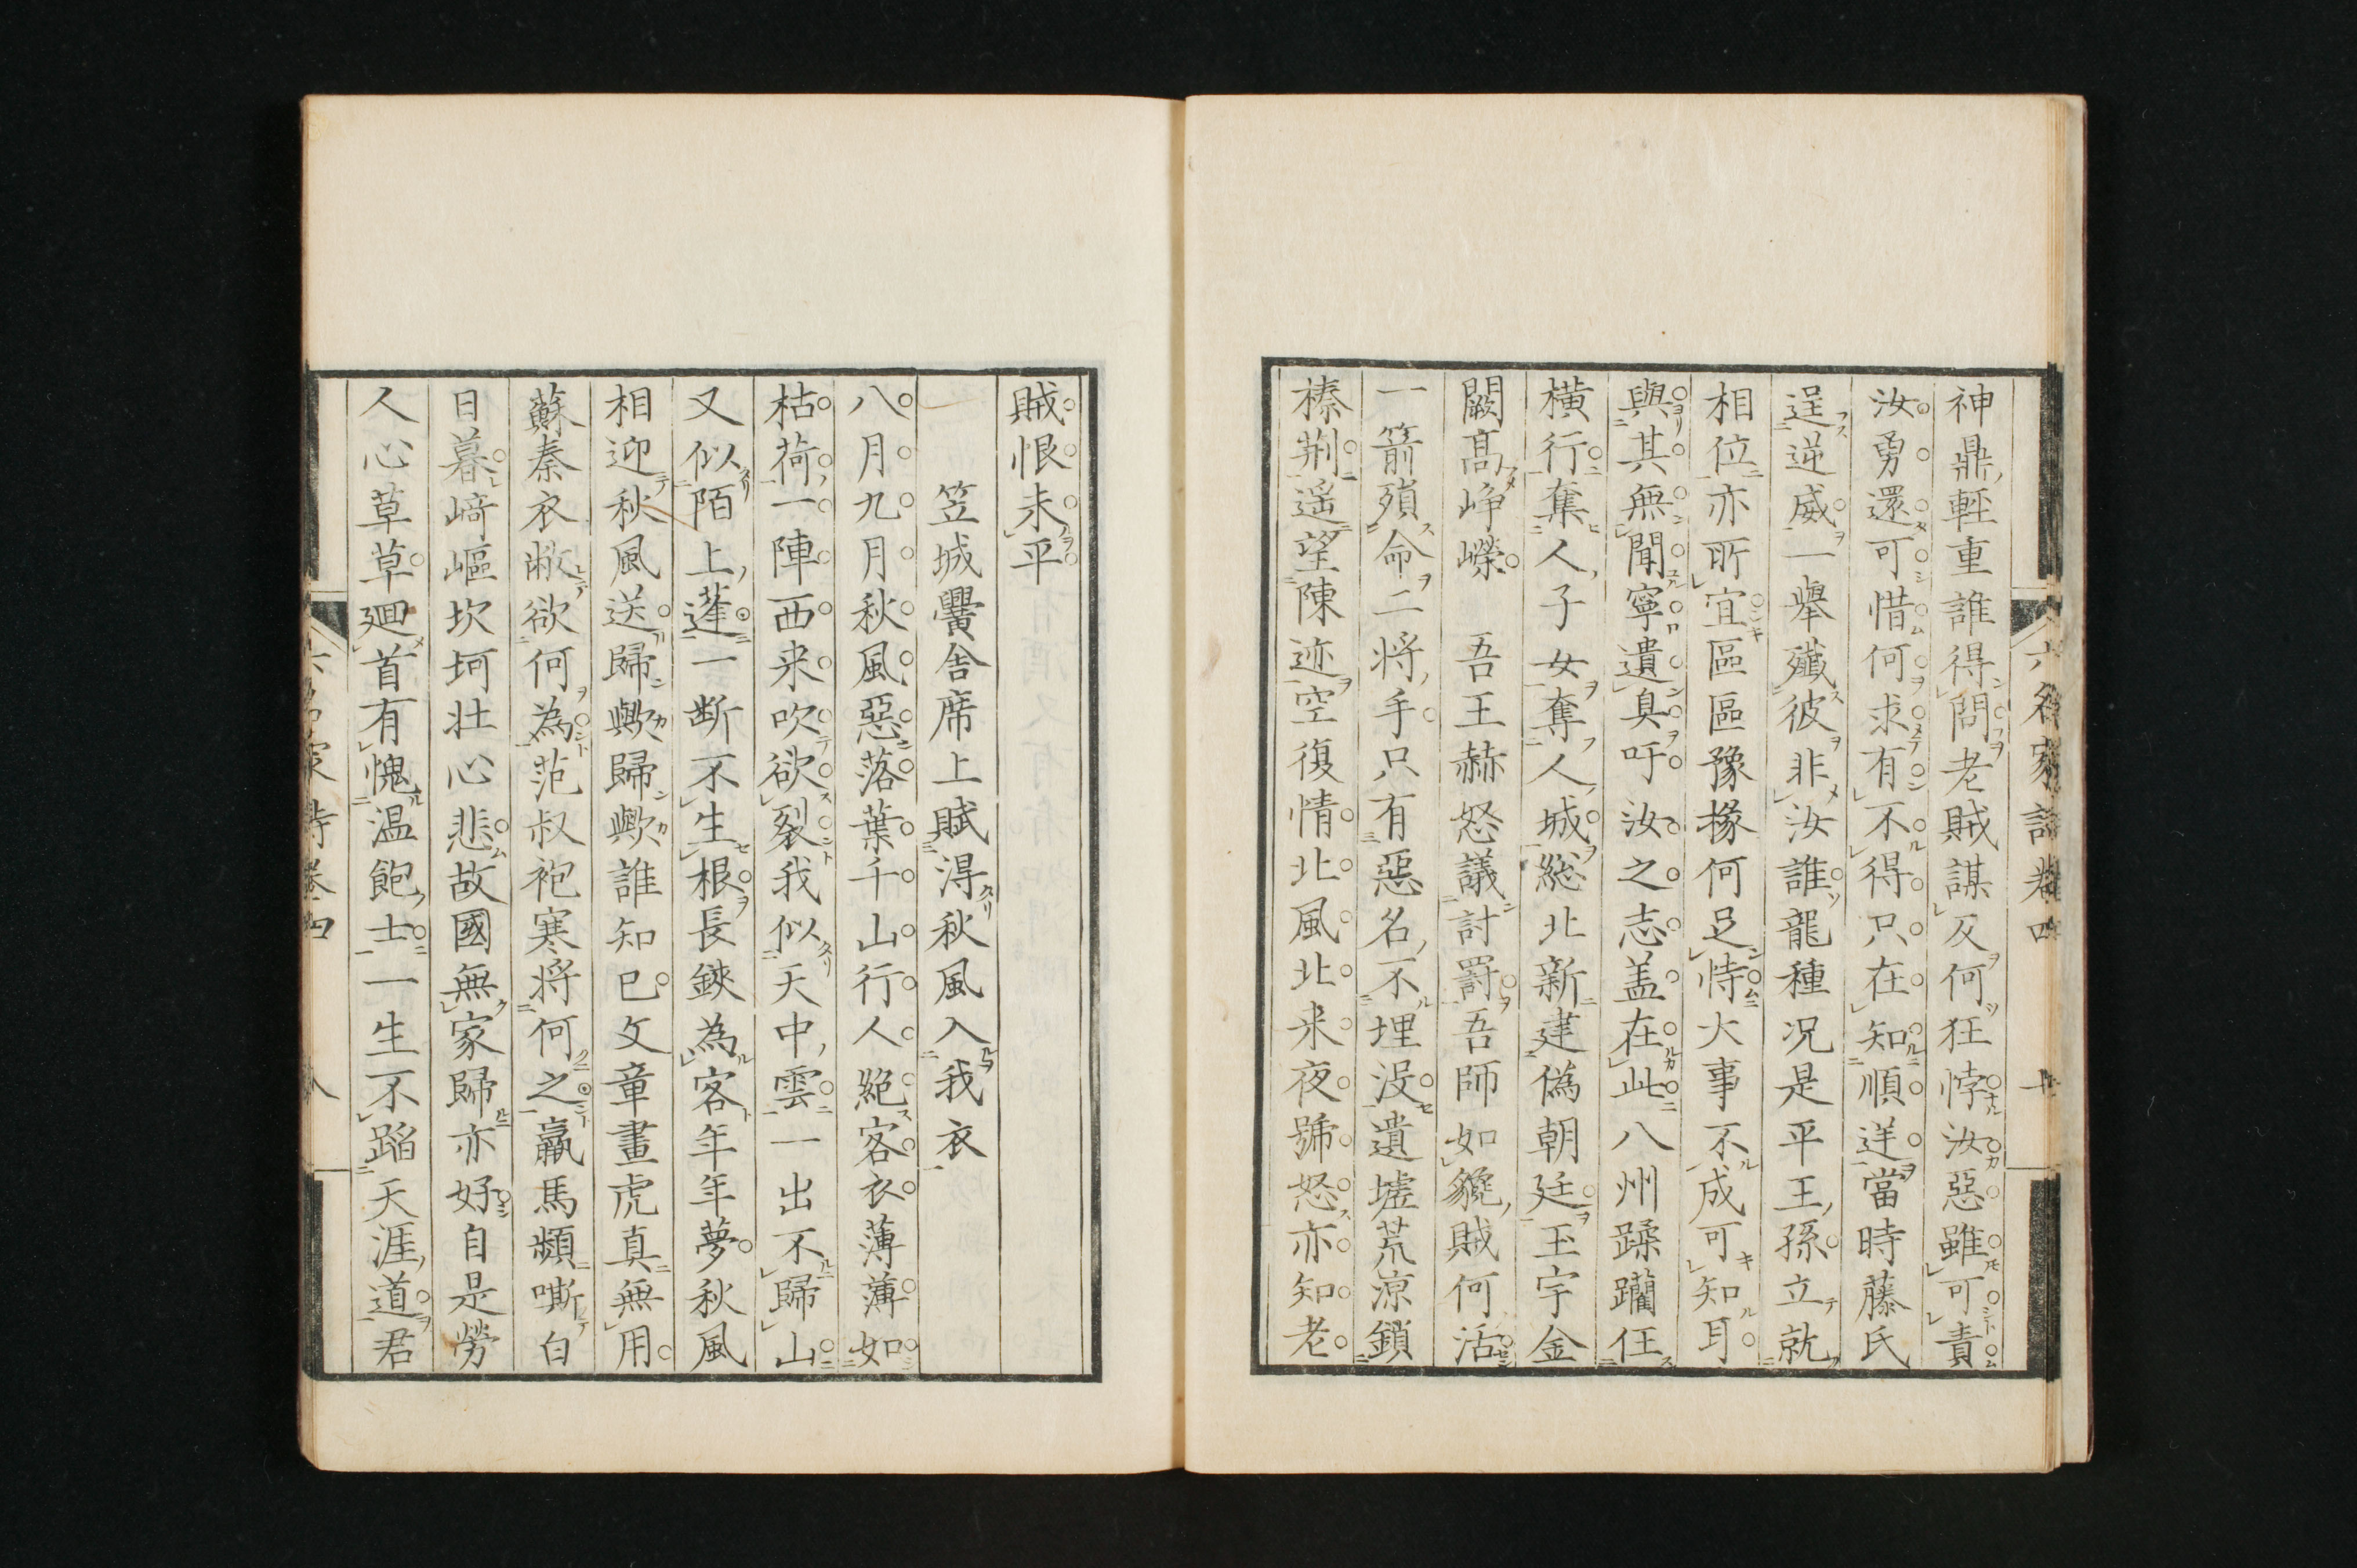 六名家詩卷四
神鼎輕重誰得問老賊謀反何狂悖汝惡雖可責
汝勇還可惜何求有不得只在知順逆當時藤氏
逞逆威一舉殲彼非汝誰龍種况是平王孫立就
相位亦所宜區區豫掾何足恃大事不成可知耳
與其無聞寧遺臭吁汝之志盖在此八州蹂躪任
橫行奪人子女奪人城総北新建偽朝廷玉宇金
闕高峥嶸　吾王赫怒議討罸吾師如貔賊何活
一箭殞命二将手只有惡名不埋没遺墟荒凉鎖
榛荆遥望陳迹空復情北風北来夜號怒亦知老
賊恨未平
笠城黌舎席上賦得秋風入我衣
八月九月秋風惡落葉千山行人絶客衣薄薄如
枯荷一陣西来吹欲裂我似天中雲一出不歸山
又似陌上蓬一断不生根長鋏為客年年夢秋風
相迎秋風送歸歟歸歟誰知已文章畫虎真無用
蘇秦衣敝欲何為范叔袍寒将何之羸馬頻嘶白
日暮﨑嶇坎坷壮心悲故國無家歸亦好自是勞
人心草草廻首有愧温飽士一生不蹈天涯道君